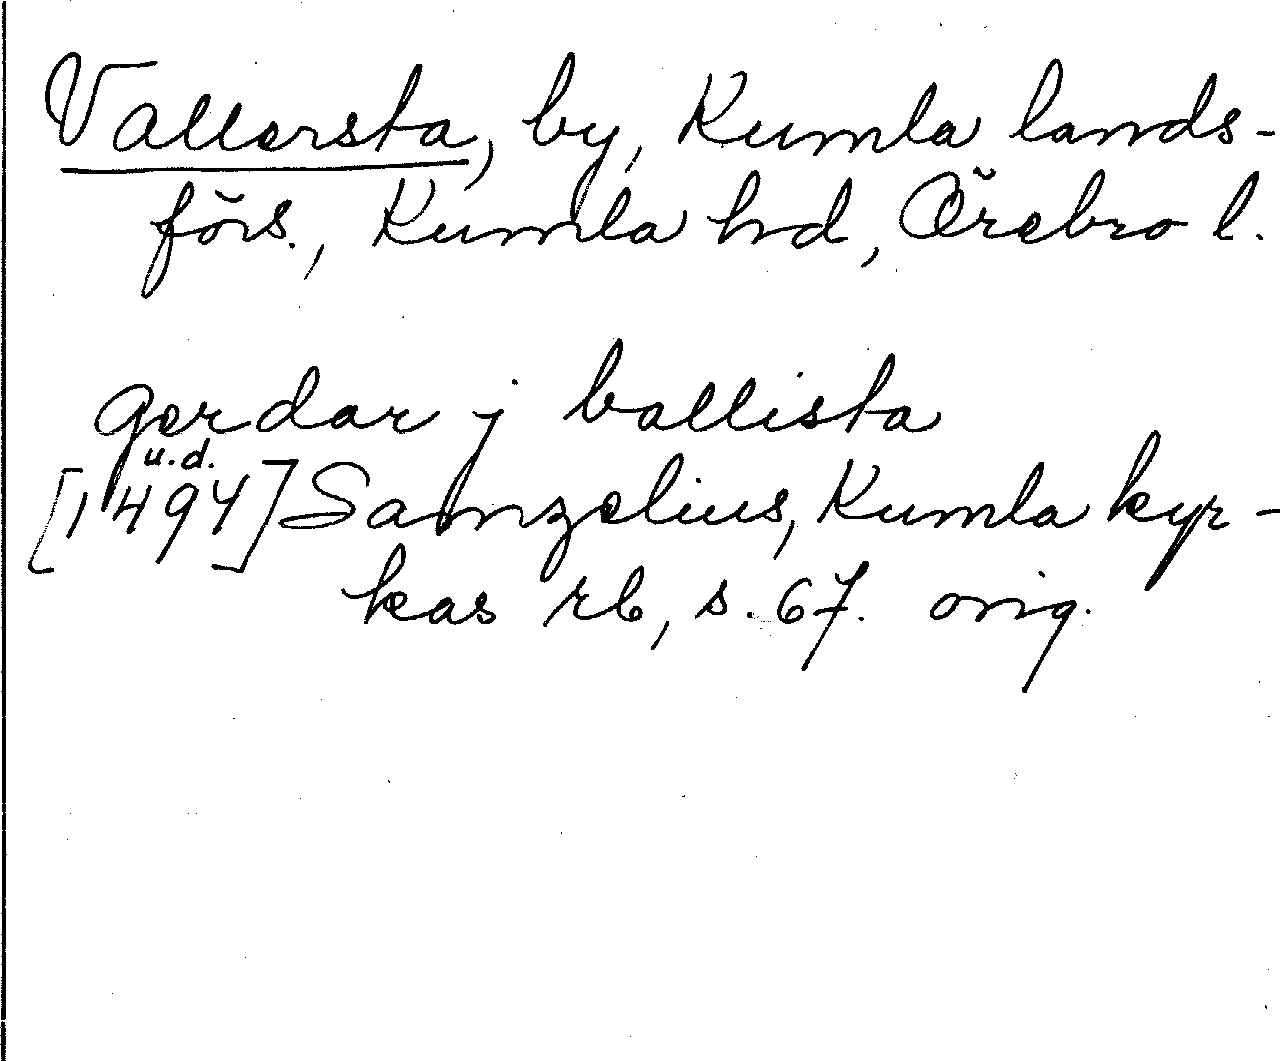 Vallersta, by, Kumla lands-
förs., Kumla hd, Örebro l.
gerdar j ballista
u.d.
[1494] Samzelius, Kumla kyr-
kas rb, s. 67. orig.